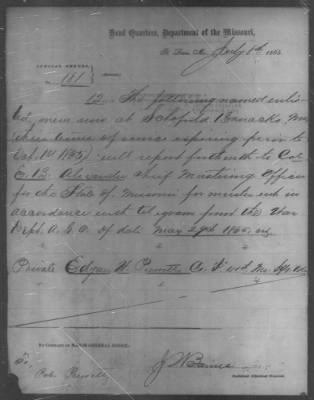 Head Quarters, Department of the Missouri,
St. Louis, Mo., July 8th 1865
SPECIAL ORDERS,
No. 181
(Extract)
12 The following named enlis-
ted men now at Schofield Barracks, Mo
(their terms of service expiring prior to
Oct. 1st 1865) will report forthwith to Col
E. B. Alexander Chief Mustering Officer
for the State of Missouri for muster out in
accordance with telegram from the War
Dept. A. G. O. of date May 29th 1865. viz
Private Edgar W. Prewitt, Co. F Mo
BY COMMAND OF MAJOR GENERAL DODGE:
To J W Barnes
Prewitt Assistant Adjutant General.